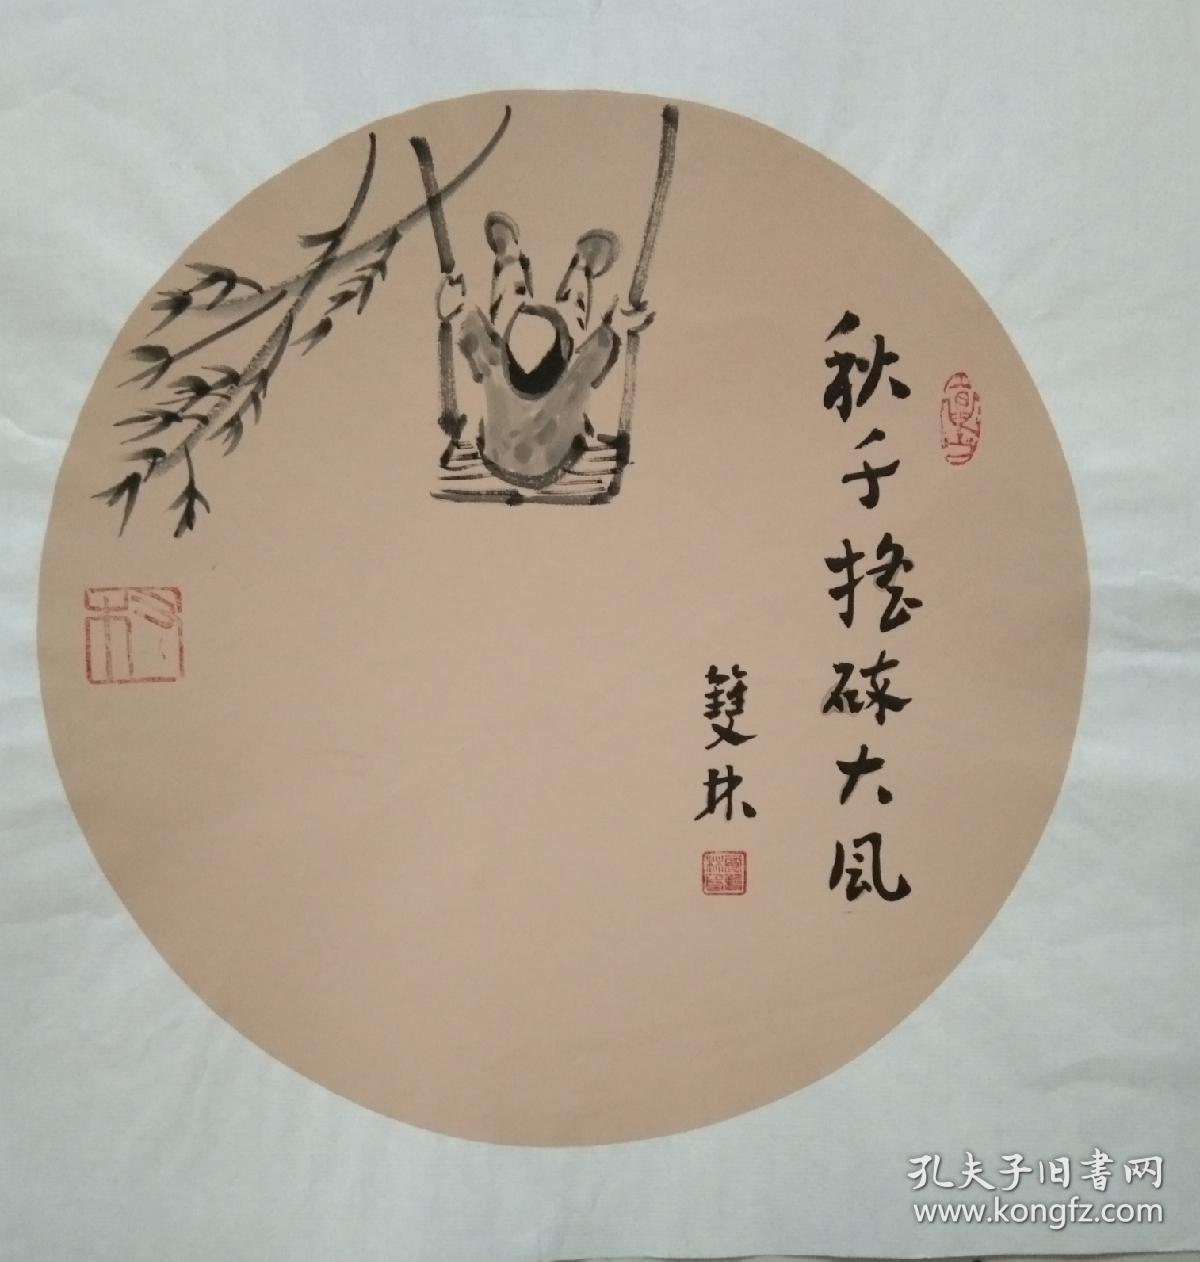 秋千摇碎大風
雙林
孔夫子旧書网
www.kongfz.com